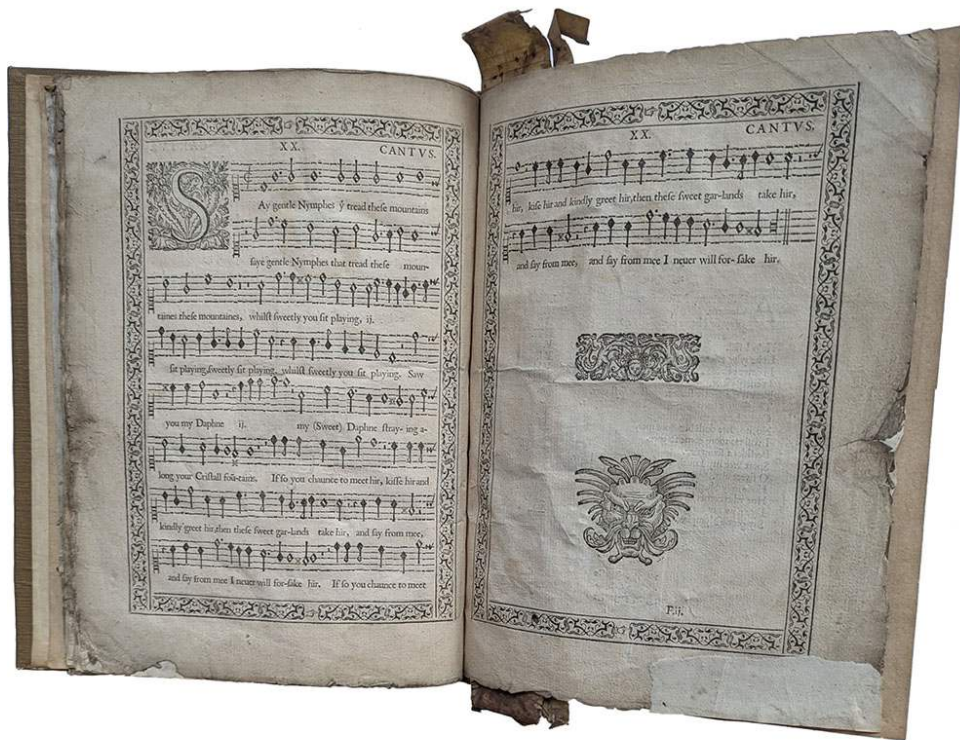 XX.
CANTVS.
SAy gentle Nymphes ẏ tread these mountains
saye gentle Nymphes that tread these moun-
taines these mountaines, whilst sweetly you sit playing, ij.
sit playing, sweetly sit playing, whilst sweetly you sit playing. Saw
you my Daphne ij. my (Sweet) Daphne stray-ing a-
long your Cristall foū-tains. If so you chaunce to meet hir, kisse hir and
kindly greet hir, then these sweet gar-lands take hir, and say from mee,
and say from mee I neuer will for-sake hir. If so you chaunce to meet
XX.
CANTVS.
hir, kisse hir and kindly greet hir, then these sweet gar-lands take hir,
and say from mee, and say from mee I neuer will for-sake hir.